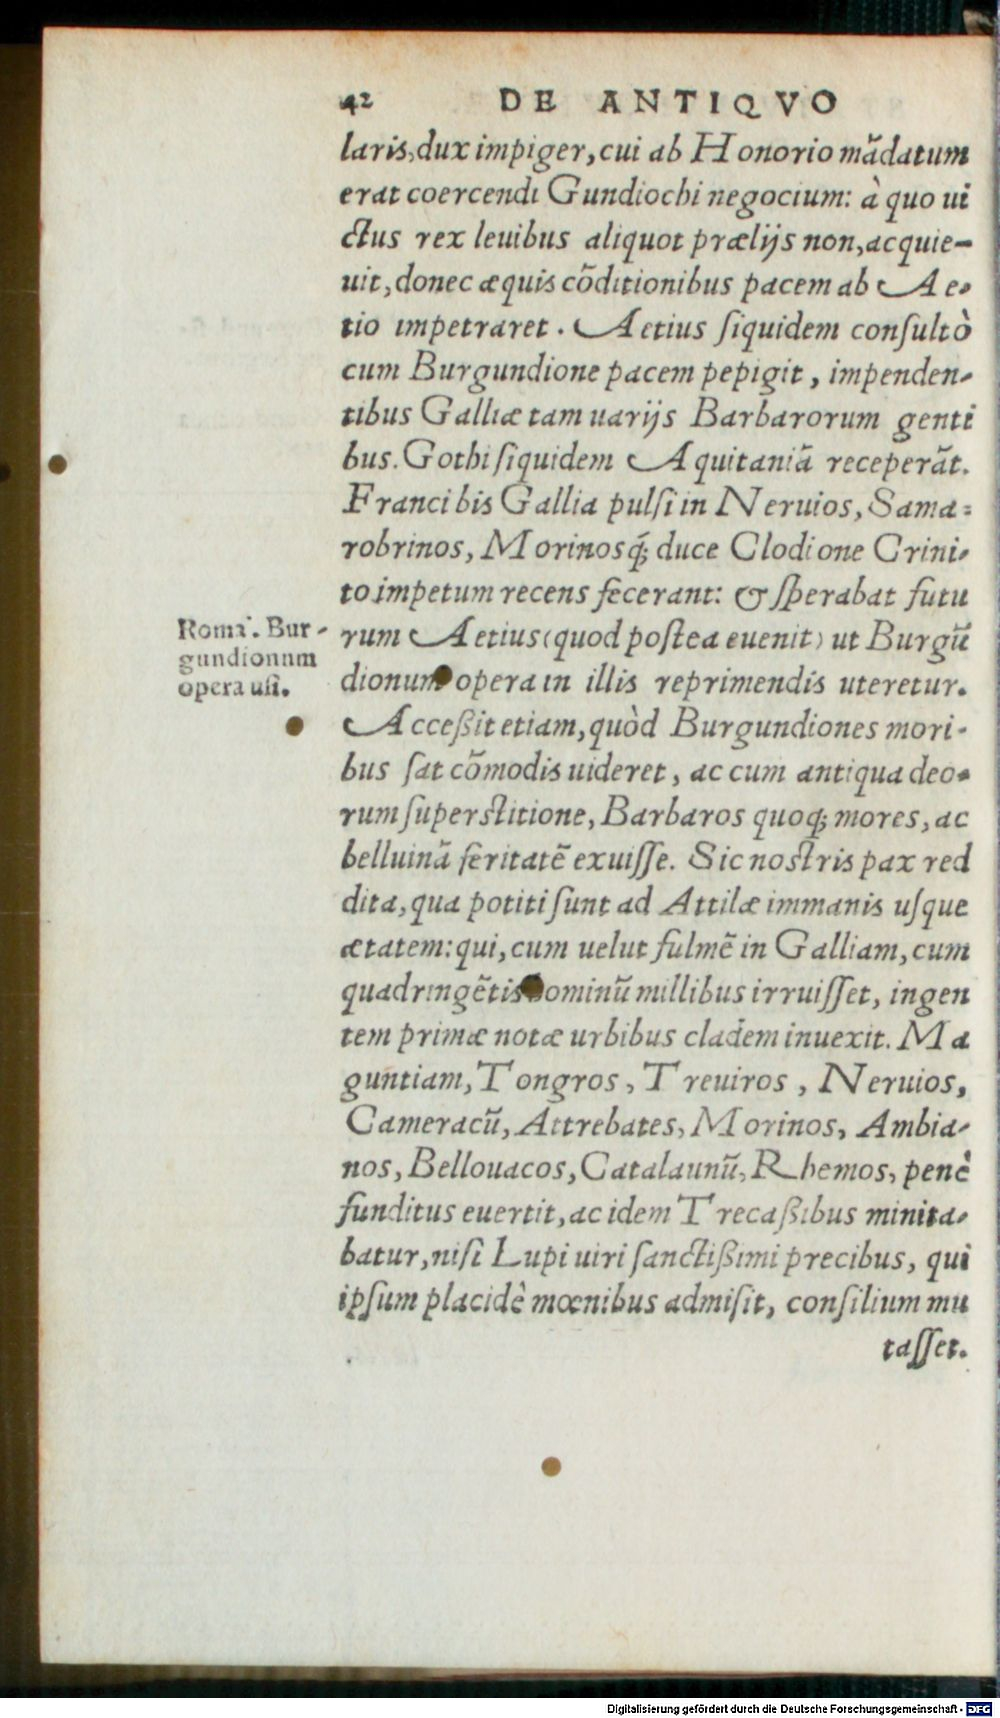 42 DE ANTIQVO
laris, dux impiger, cui ab Honorio mãdatum
erat coercendi Gundiochi negocium: à quo ui
ctus rex leuibus aliquot prælijs non, acquie-
uit, donec æquis cõditionibus pacem ab Ae-
tio impetraret. Aetius siquidem consultò
cum Burgundione pacem pepigit, impenden-
tibus Galliæ tam uarijs Barbarorum genti
bus. Gothi siquidem Aquitaniã receperãt.
Franci bis Gallia pulsi in Neruios, Sama-
robrinos, Morinosq́; duce Clodione Crini-
to impetum recens fecerant: & sperabat futu
Roma. Bur-
gundionum
opera usi.
rum Aetius (quod postea euenit) ut Burgũ
dionum opera in illis reprimendis uteretur.
Acceßit etiam, quòd Burgundiones mori-
bus sat cõmodis uideret, ac cum antiqua deo-
rum superstitione, Barbaros quoq; mores, ac
belluinã feritatẽ exuisse. Sic nostris pax red
dita, qua potiti sunt ad Attilæ immanis usque
ætatem: qui, cum uelut fulmẽ in Galliam, cum
quadringẽtis hominũ millibus irruisset, ingen
tem primæ notæ urbibus cladem inuexit. Ma
guntiam, Tongros, Treuiros, Neruios,
Cameracũ, Attrebates, Morinos, Ambia-
nos, Bellouacos, Catalaunũ, Rhemos, penè
funditus euertit, ac idem Trecaßibus minita-
batur, nisi Lupi uiri sanctißimi precibus, qui
ipsum placidè mœnibus admisit, consilium mu
tasset.
Digitalisierung gefördert durch die Deutsche Forschungsgemeinschaft - DFG